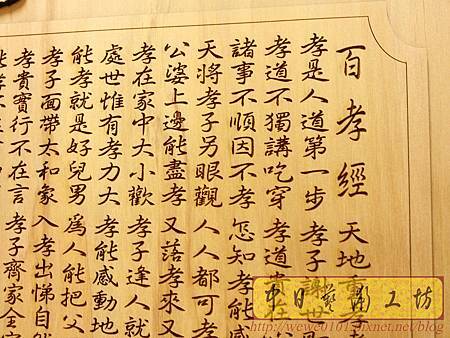 百孝經 天地重孝
孝是人道第一步 孝子謝世
孝道不獨講吃穿 孝道貴在
諸事不順因不孝 怎知孝能感
天將孝子另眼觀 人人都可孝
公婆上邊能盡孝 又落孝來又
孝在家中大小歡 孝子逢人就
處世惟有孝力大 孝能感動地
能孝就是好兒男 爲人能把父
孝子面帶太和象 入孝出悌自然
孝貴實行不在言 孝子齊家全
中日藝術工坊
http://wewe01015.pixnet.net/blog